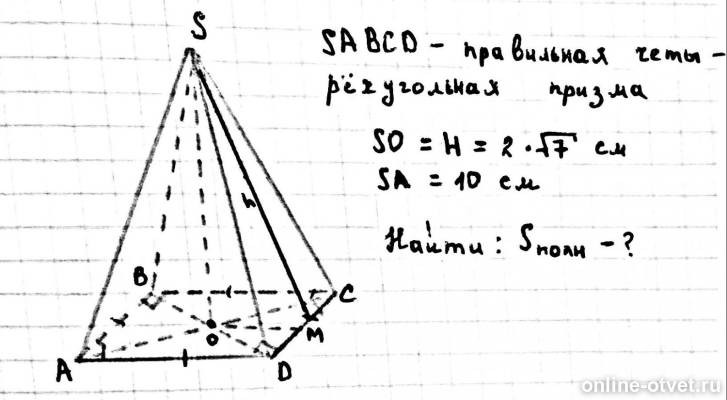 S
SABCD – правильная четы-
рёхугольная призма
SO = H = 2·√7 см
SA = 10 см
h
Найти: Sполн – ?
B
C
O
M
A
D
online-otvet.ru